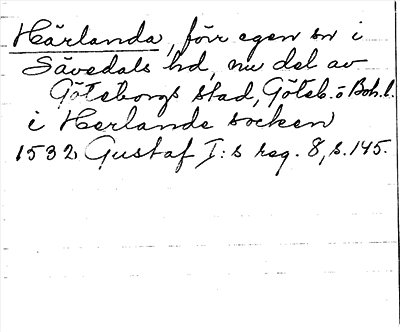 Härlanda, förr egen sn i
Sävedals hd, nu del av
Göteborgs stad, Göteb. o Boh. l.
i Herlande socken
1532 Gustaf I:s reg. 8, s. 145.